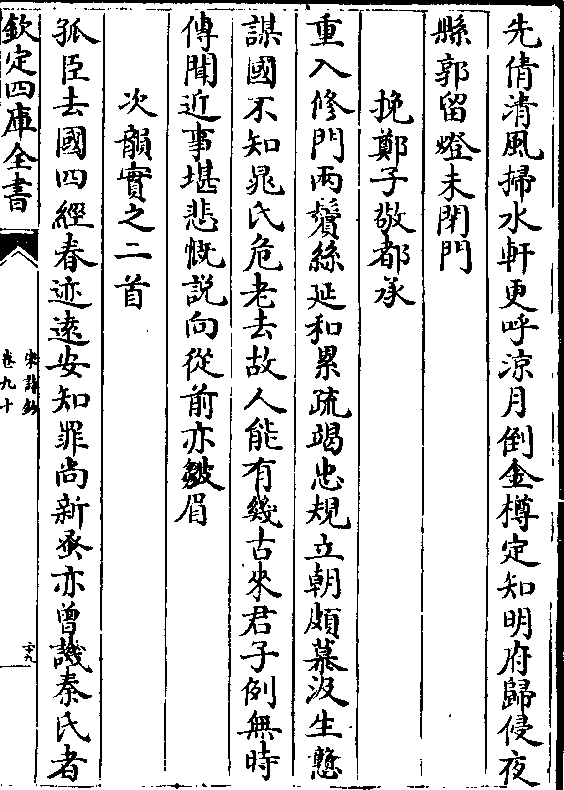 先倩清風掃水軒更呼涼月倒金樽定知明府歸侵夜
縣郭留燈未閉門
挽鄭子敬都承
重入修門兩鬢絲延和累疏竭忠規立朝頗慕汲生戇
謀國不知晁氏危老去故人能有幾古來君子例無時
傳聞近事堪悲慨説向從前亦皺眉
次韻實之二首
孤臣去國四經春迹遠安知罪尚新爻亦曾譏秦氏者
欽定四庫全書
宋詩鈔
卷九十